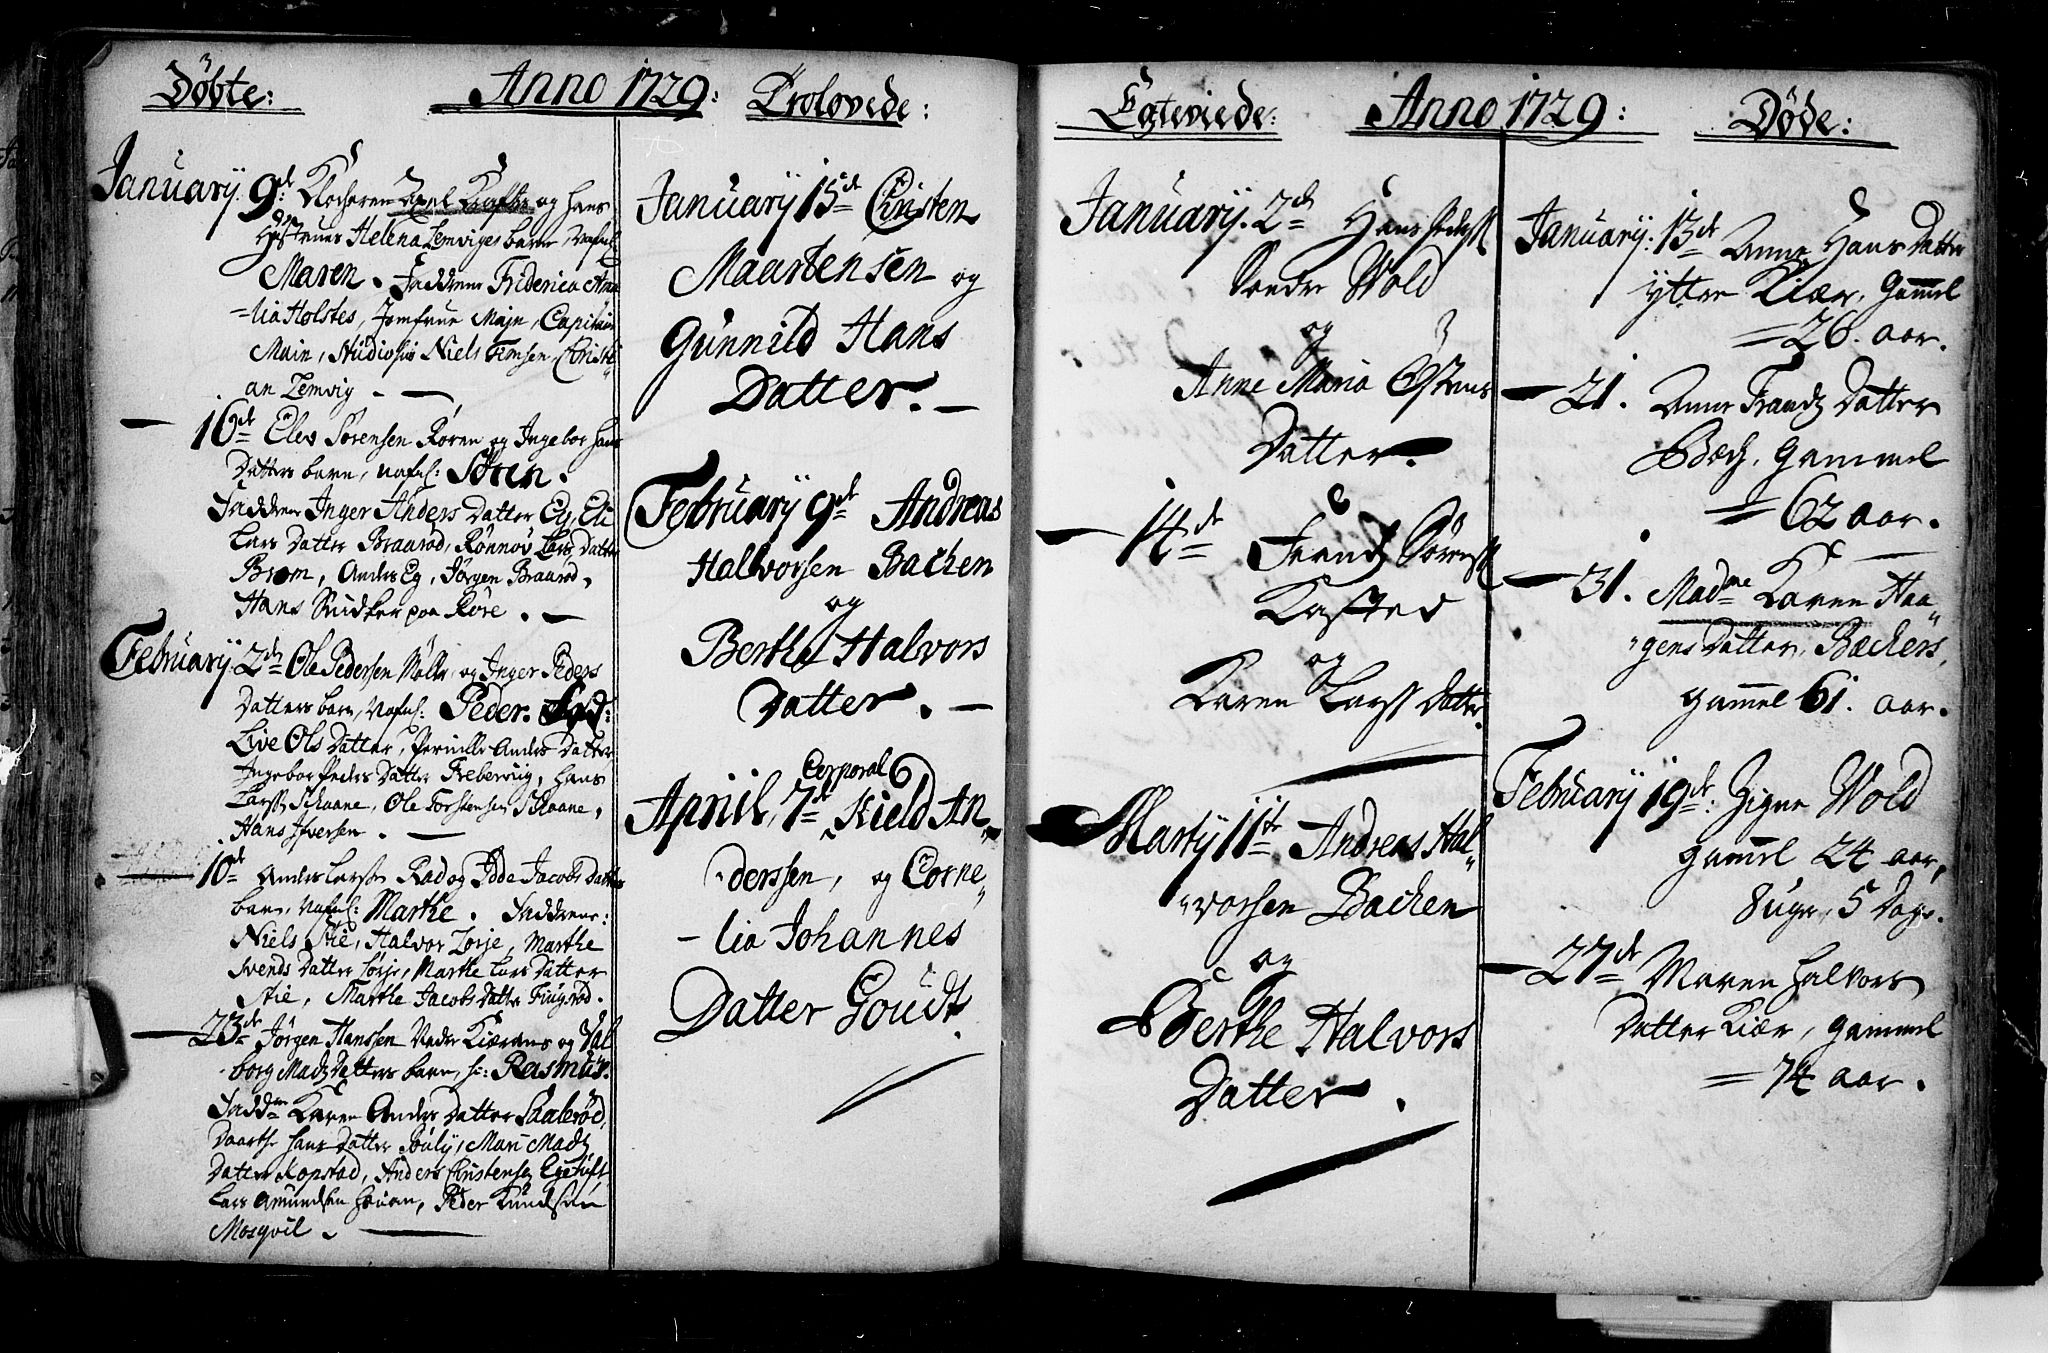 Døbte:
Anno 1729:
January 9de Klocheren Axel og hans
Hustrues Helena Lemviges barn, Nafnl:
Maren. Faddrene Friderica Ama
=lia Holstes, Jomfrue Majn, Capitain
Main, Studiosus Niels Christi"
an Lemvig. —
— 16de Elev Sørensen Røren og Ingebor Hans
Datters barn, nafnl: Søren.
Faddrene Inger Anders Datter Eg, Eli
Lars Datter Braarød, Rønnov Lars Datter
Brom, Anders Eg, Jørgen Braarød,
Hans Snidker paa Røre. —
February 2de Ole Pedersen Mølle, og Inger Peders
Datters barn, Nafnl: Peder. Fad:
Live Ols Datter, Pernille Anders Datter
Ingebor Peders Datter Frebervig, Hans
Larss: Schaane, Ole Torstensen Schaane,
Hans Ifversen. —
— 10de Anders Larss: Rød og Idde Jacobs Datters
barn, Nafnl: Marthe. Faddrene:
Niels Stie, Halvor Lørje, Marthe
Svends Datter Lørje, Marthe Lars Datter
Stie, Marthe Jacobs Datter Fuglerød.
— 23de Jørgen Hanssen Nedre Kiærans og Val
borg Madz Datters barn, n: Rasmus.
Faddrne Karen Anders Datter Saalerød,
Daarthe Hans Datter Mari Madz
Datter Kopstad, Anders Christensen
Lars Amundsen Peder Knudsen
Mosqvil. —
Troløvede:
January 15de Christen
Maartensen og
Gunnild Hans
Datter. —
February 9de Andreas
Halvorsen Bachen
og
Berthe Halvors
Datter. —
Corporal
April, 7de Kield An"
"derssen, og Corne"
-lia Johannes
Datter Goudt.
Egteviede:
Anno 1729:
January. 2de Hans Pederss:
Søndre Wold
og
Anne Maria Østens
Datter.
— 14de Frandz Sørenss:
Kasted
og
Karen Larss Datter.
Marty 11te Andreas Hal"
"vorsen Bachen
og
Berthe Halvors
Datter.
Døde:
January: 13de Anne Hans Datter
Yttre Kiær, gammel
= 26. aar.
— 21. Anne Frandz Datter
Bæch, gammel
= 62 aar.
— 31. Madme Karen Haa"
"gens Datter, Bæckers,
gammel 61. aar.
February 19de: Zigne Wold
gammel 24 aar,
8 uger, 5 Dage.
— 27de Maren Halvors
Datter Kiær, gammel
= 74 aar.